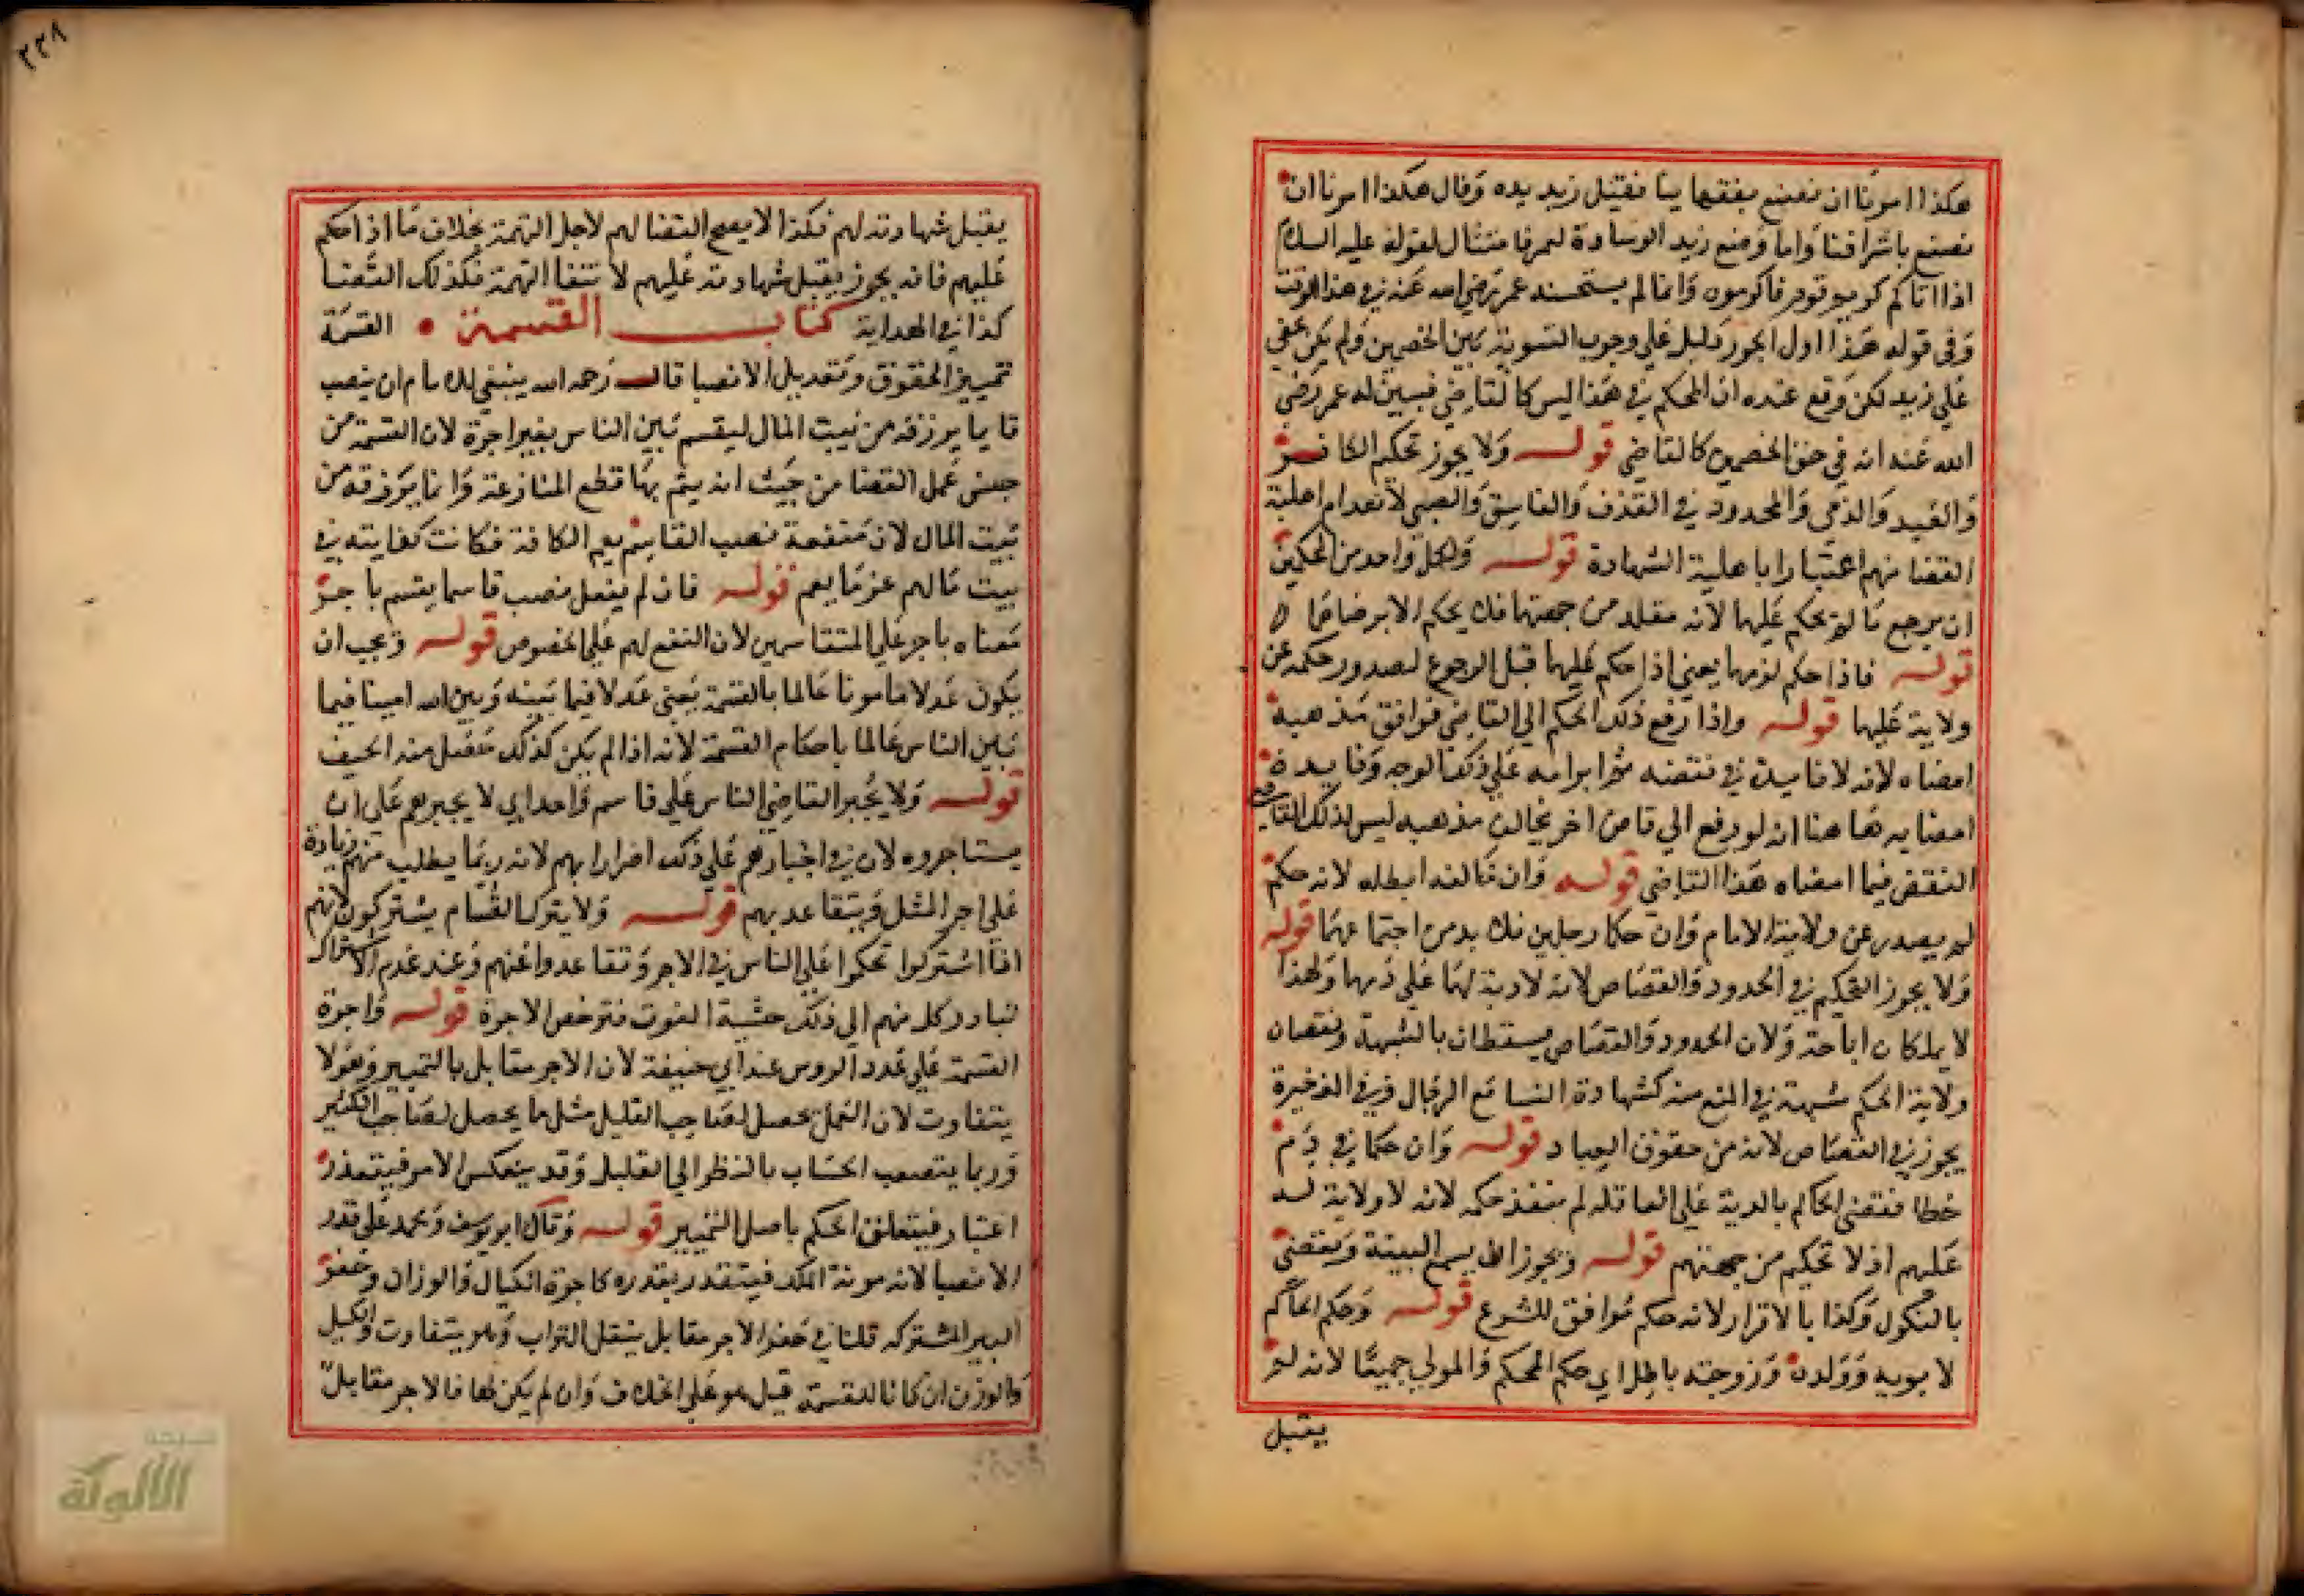 هكذا امرنا ان نصنع بفقهاينا فقبل زيد يده وقال هكذا امرنا ان
نصنع باشرافنا واما وضع زيد الوسادة لعمر فامتثال لقوله عليه السلام
اذا اتاكم كريم قوم فاكرموه وانما لم يستحسنه عمر رضي الله عنه في هذا الوقت
وفى قوله هذا اول الجور دليل على وجوب التسوية بين الخصمين ولم يكن يخفي
على زيد لكن وقع عنده ان المحكم في هذا ليس كالقاضي فبين له عمر رضي
الله عنه انه في حق الخصمين كالقاضي قوله ولا يجوز تحكيم الكافر
والعبد والذمي والمحدود في القذف والفاسق والصبي لانعدام اهلية
القضا منهم اعتبارا باهلية الشهادة قوله ولكل واحد من المحكمين
ان يرجع ما لم يحكم عليهما لانه مقلد من جهتهما فلا يحكم الا برضاهما
قوله فاذا حكم لزمهما يعني اذا حكم عليهما قبل الرجوع لصدور حكمه عن
ولاية عليهما قوله واذا رفع ذلك الحكم الى القاضي فوافق مذهبه
امضاه لانه لا فايدة في نقضه ثم ابرامه على ذلك الوجه وفايدة
امضايه هاهنا انه لو رفع الى قاض اخر يخالف مذهبه ليس لذلك القاضي
النقض فيما امضاه هذا القاضي قوله وان خالفه ابطله لانه حكم
لم يصدر عن ولاية الامام وان حكما رجلين فلا بد من اجتماعهما قوله
ولا يجوز التحكيم في الحدود والقصاص لانه لا ولاية لهما على دمهما ولهذا
لا يملكان اباحته ولان الحدود والقصاص يسقطان بالشبهة ونقصان
ولاية الحكم شبهة في المنع منه كشهادة النسا مع الرجال وفي الذخيرة
يجوز في القصاص لانه من حقوق العباد قوله وان حكما في دم
خطا فقضى الحاكم بالدية على العاقلة لم ينفذ حكمه لانه لا ولاية له
عليهم اذ لا تحكيم من جهتهم قوله ويجوز ان يسمع البينة ويقضى
بالنكول وكذا بالاقرار لانه حكم موافق للشرع قوله وحكم الحاكم
لابويه وولده وزوجته باطل اي حكم المحكم والمولي جميعا لانه لم
يقبل
٢٣٨
يقبل شهادته لهم فكذا لا يصح القضا لهم لاجل التهمة بخلاف ما اذا حكم
عليهم فانه يجوز يقبل شهادته عليهم لانتفا التهمة فكذلك القضا
كذا في الهداية كتاب القسمة القسمة
تمييز الحقوق وتعديل الانصبا قال رحمه الله ينبغي للامام ان ينصب
قاسما يرزقه من بيت المال ليقسم بين الناس بغير اجرة لان القسمة من
جنس عمل القضا من حيث انه يتم بها قطع المنازعة وانما يرزقه من
بيت المال لان منفعة نصب القاسم يعم الكافة فكانت كفايته في
بيت مالهم غرما بغنم قوله فان لم يفعل نصب قاسما يقسم باجر
معناه باجر على المتقاسمين لان النفع لهم على الخصوص قوله ويجب ان
يكون عدلا مامونا عالما بالقسمة يعنى عدلا فيما بينه وبين الله امينا فيما
بين الناس عالما باحكام القسمة لانه اذا لم يكن كذلك حصل منه الحيف
قوله ولا يجبر القاضي الناس على قاسم واحد اي لا يجبرهم على ان
يستاجروه لان في اجبارهم على ذلك اضرارا بهم لانه ربما يطلب منهم زيادة
على اجر المثل ويتقاعد بهم قوله ولا يترك القسام يشتركون لانهم
اذا اشتركوا تحكموا على الناس في الاجر وتقاعدوا عنهم وعند عدم الاشتراك
تبادر كل منهم الى ذلك خشية الفوت فترخص الاجرة قوله واجرة
القسمة على عدد الروس عند ابي حنيفة لان الاجر مقابل بالتمييز وهو لا
يتفاوت لان العمل يحصل لصاحب القليل مثل ما يحصل لصاحب الكثير
وربما يتصعب الحساب بالنظر الى القليل وقد ينعكس الامر فيتعذر
اعتباره فيتعلق الحكم باصل التمييز قوله وقال ابو يوسف ومحمد على قدر
الانصبا لانه مونة الملك فيتقدر بقدره كاجرة الكيال والوزان وحفر
البير المشتركه قلنا في حفر الاجر مقابل بنقل التراب وهو يتفاوت والكيل
والوزن ان كانا للقسمة قيل هو على الخلاف وان لم يكن لها فالاجر مقابل
الألوكة